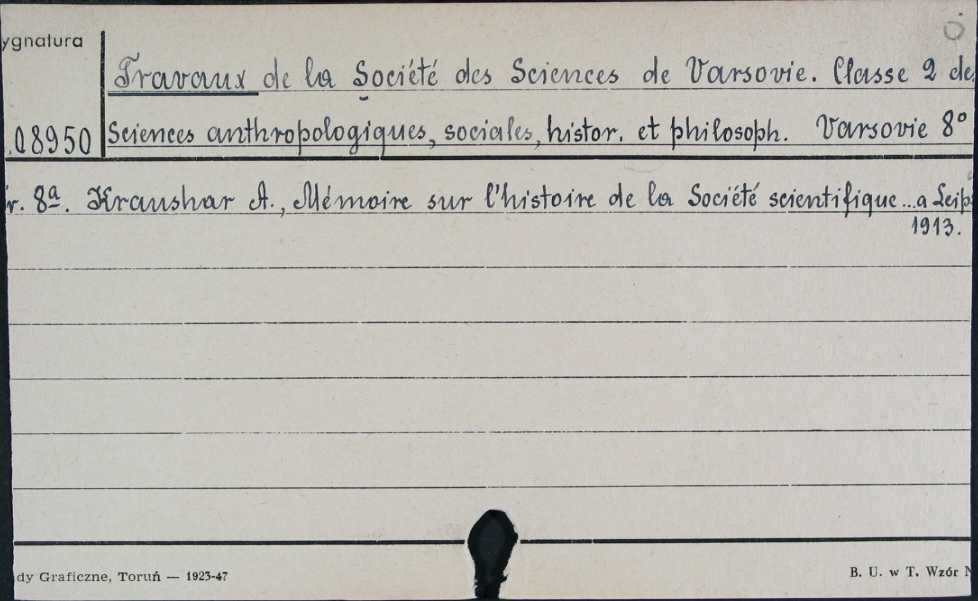 ygnatura
Travaux de la Société des Sciences de Varsovie. Classe 2 de
08950 Sciences anthropologiques, sociales, histor. et philosoph. Varsovie 8°
r. 8a. Kraushar A., Mémoire sur l'histoire de la Société scientifique ... a Leip
1913.
dy Graficzne, Toruń — 1923-47
B. U. w T. Wzór N